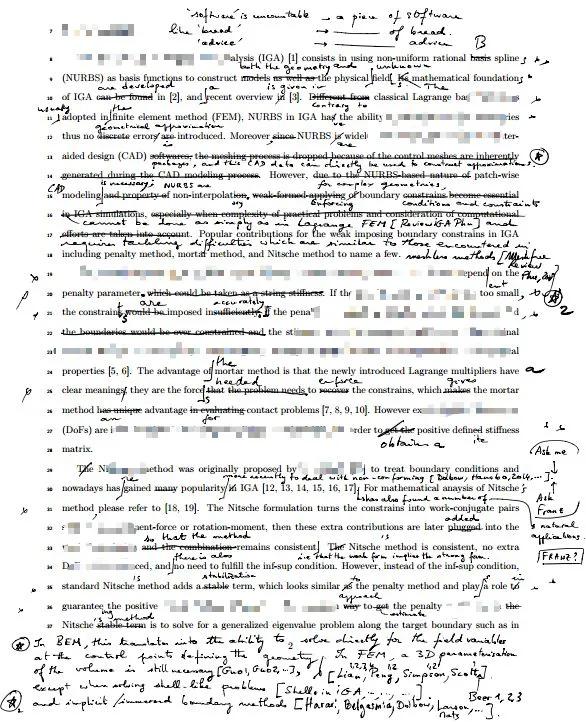 "software" is uncountable → a piece of software
like "bread" → of bread.
"advice" → advice B
7
8 alysis (IGA) [1] consists in using non-uniform rational basis spline
both the geometry and unknown
9 (NURBS) as basis functions to construct models as well as the physical field. The mathematical foundations
are developed a is given in
10 of IGA can be found in [2], and recent overview in [3]. Different from classical Lagrange ba
usually the contrary to
11 adopted in finite element method (FEM), NURBS in IGA has the ability ries
geometrical approximation
12 thus no discrete errors are introduced. Moreover since NURBS is widel ter-
13 aided design (CAD) softwares, the meshing process is dropped because of the control meshes are inherently
packages, and this CAD data can directly be used to construct approximations.
14 generated during the CAD modeling process. However, due to the NURBS-based nature of patch-wise
CAD is necessary NURBS are for complex geometries.
15 modeling and property of non-interpolation, weak-formed applying of boundary constrains become essential
enforcing conditions and constraints
16 in IGA simulations, especially when complexity of practical problems and consideration of computational
cannot be done as simply as in Lagrange FEM [Review IGA Phu] and
17 efforts are taken into account. Popular contributions for the weak imposing boundary constrains in IGA
requires tackling difficulties which are similar to those encountered in
18 including penalty method, mortar method, and Nitsche method to name a few. meshless methods [Meshfree Review Phu,
19 epend on the
20 penalty parameter, which could be taken as a string stiffness. If the too small,
are accurately
21 the constrains would be imposed insufficiently, if the penal d,
22 the boundaries would be over constrained and the sti nal
23 al
24 properties [5, 6]. The advantage of mortar method is that the newly introduced Lagrange multipliers have a
the needed enforce gives
25 clear meanings, they are the force that the problem needs to recover the constrains, which makes the mortar
26 method has unique advantage in evaluating contact problems [7, 8, 9, 10]. However ex
for
27 (DoFs) are i rder to get the positive defined stiffness
obtain a ite
28 matrix.
29 The Ni ethod was originally proposed by ] to treat boundary conditions and
more recently to deal with non-conforming [Dolbow, Hansbo, 2014, ...].
30 nowadays has gained many popularity in IGA [12, 13, 14, 15, 16, 17]. For mathematical anaysis of Nitsche's
has also found a number of
31 method please refer to [18, 19]. The Nitsche formulation turns the constrains into work-conjugate pairs
added
32 s ent-force or rotation-moment, then these extra contributions are later plugged into the
so that the method is
33 and the combination remains consistent. The Nitsche method is consistent, no extra
there is also i.e. that the weak form implies the strong form.
34 Do ced, and no need to fulfill the inf-sup condition. However, instead of the inf-sup condition,
is stabilization to in
35 standard Nitsche method adds a stable term, which looks similar as the penalty method and play a role to
approach estimate
36 guarantee the positive way to get the penalty the
ing method
37 Nitsche stable term is to solve for a generalized eigenvalue problem along the target boundary such as in
2
Ask me
Ask Franz
& natural applications.
FRANZ?
In BEM, this translates into the ability to solve directly for the field variables
at the control points defining the geometry. In FEM, a 3D parameterisation
of the volume is still necessary [Guo1, Guo2, ...], [Lian, Peng, Simpson, Scott]
except when solving shell-like problems [Shells in IGA ...]
and implicit/immersed boundary methods [Harari, Belgasmia, Dolbow, Larson, ...] Beer 1, 2, 3